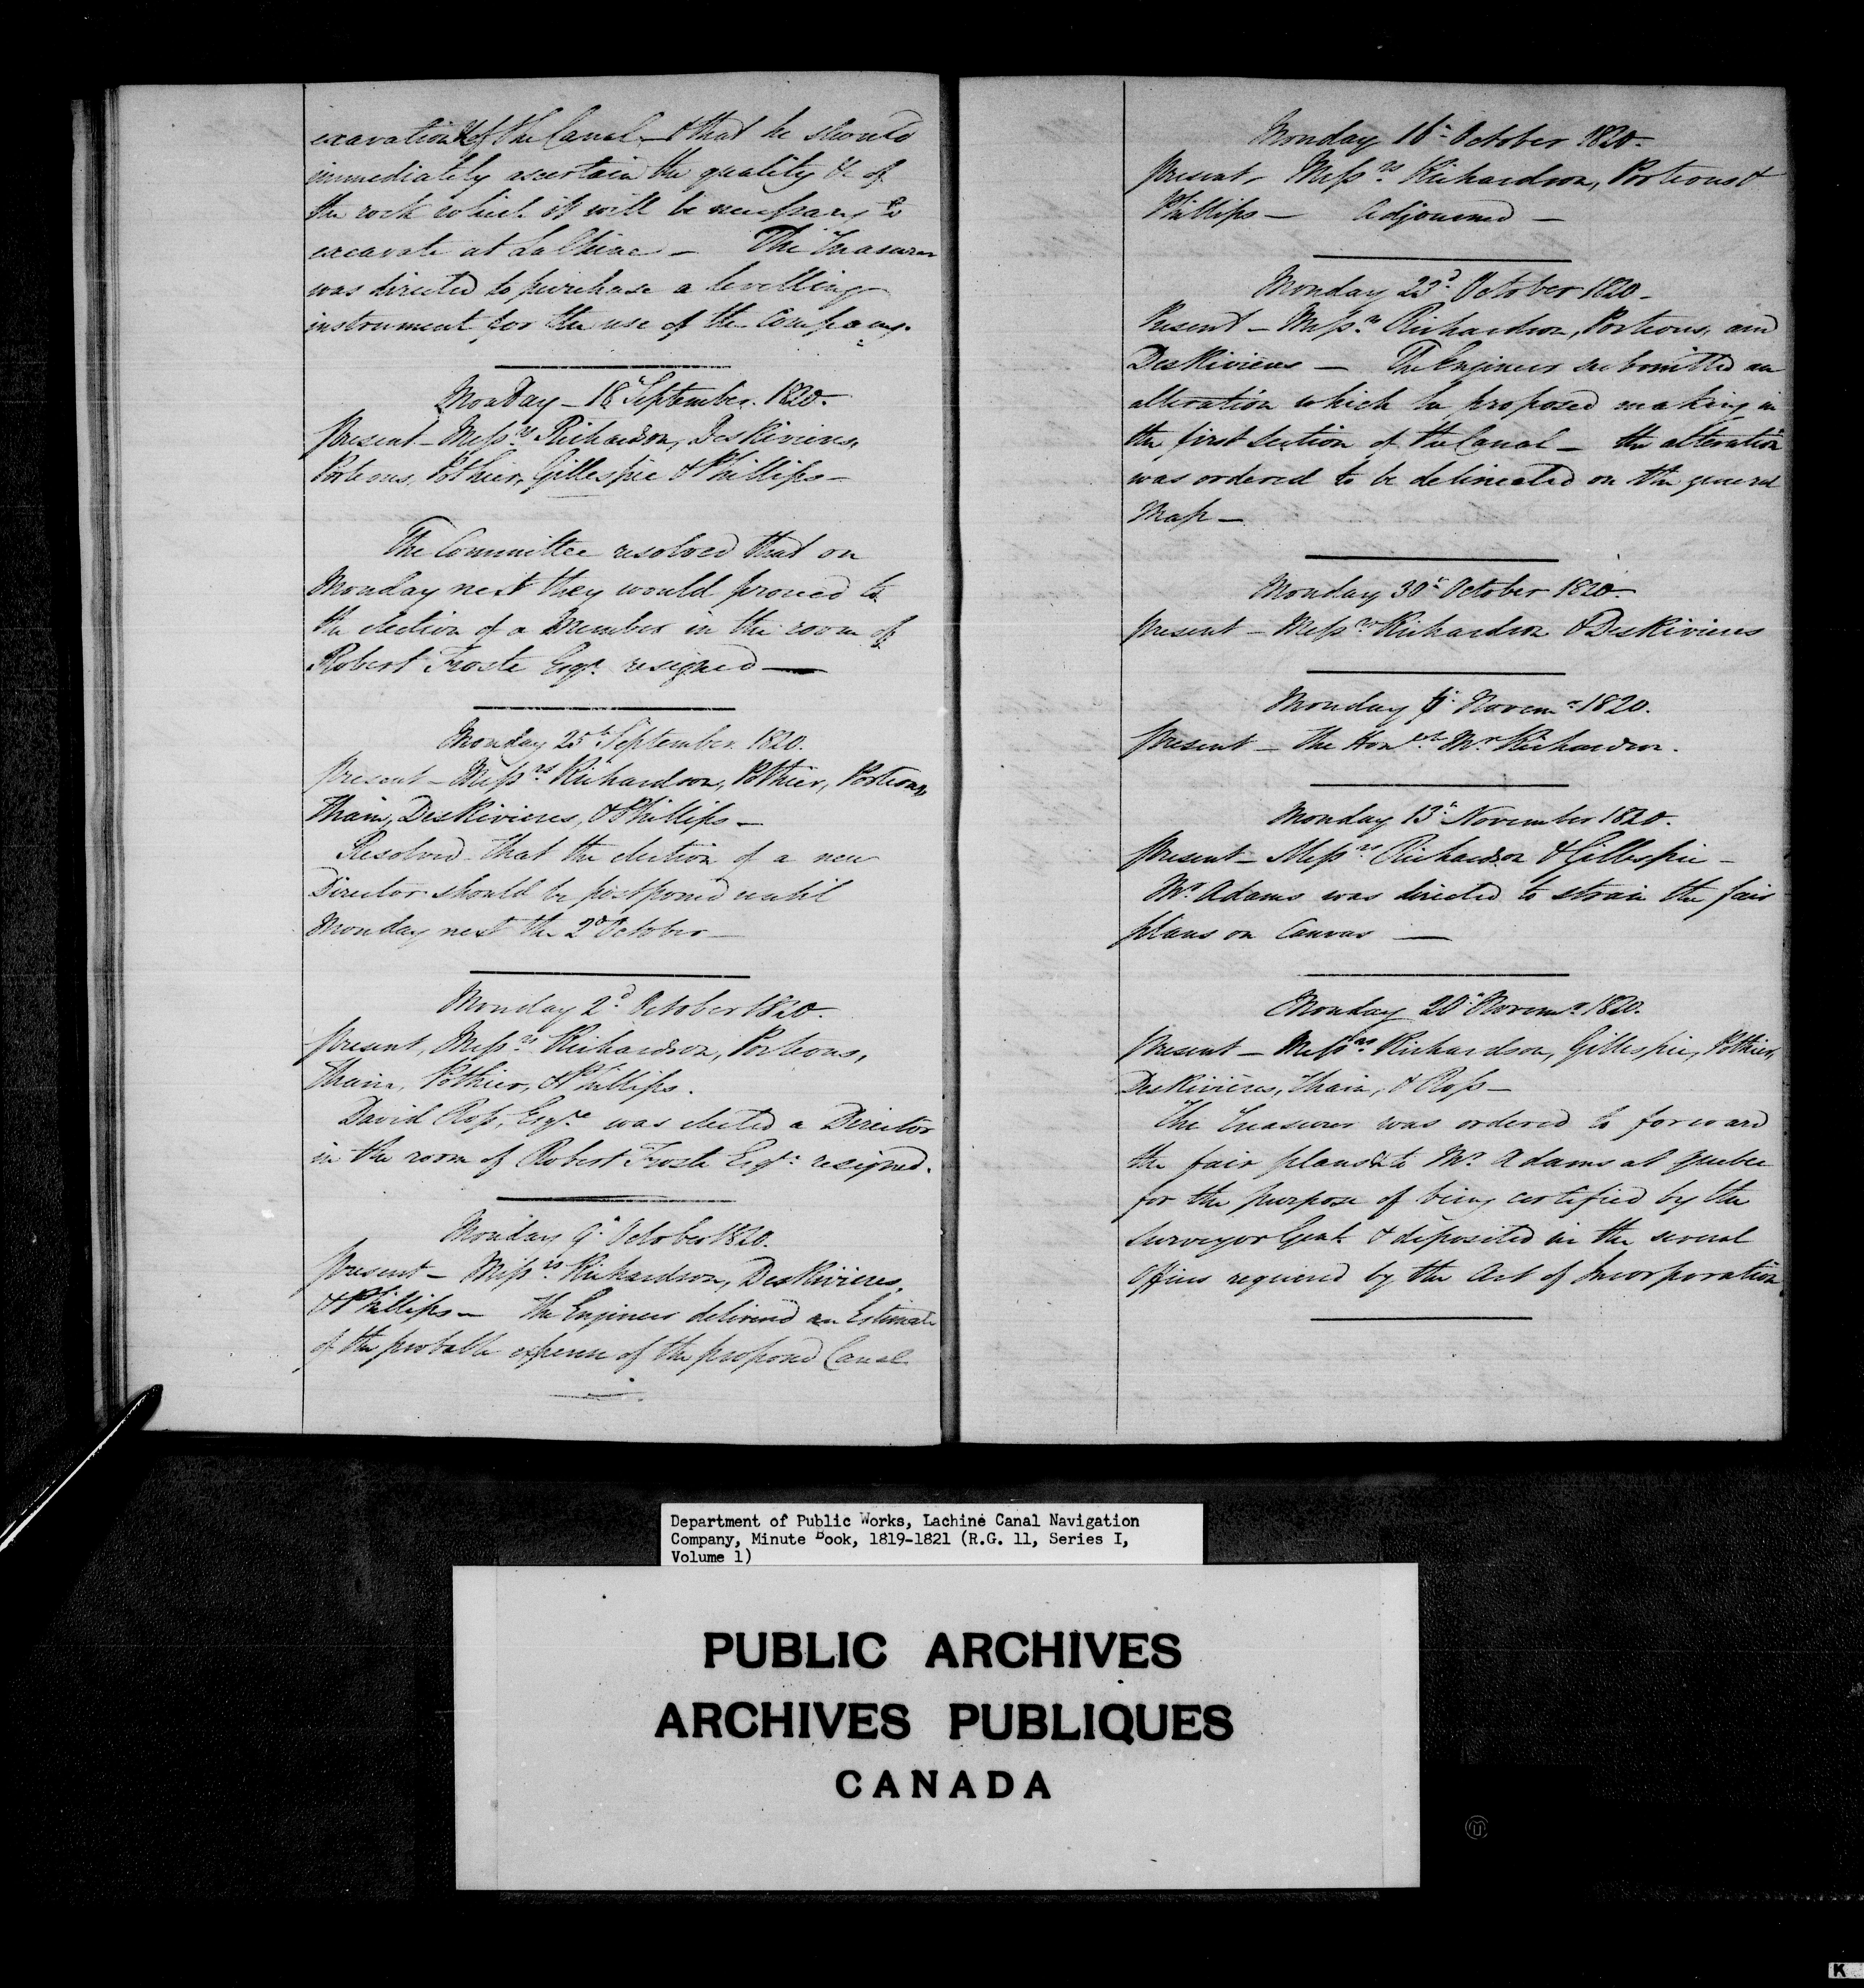 excavation of the Canal, & that he should
immediately ascertain the quality &c of
the rock which it will be necessary to
excavate at LaChine – The Treasurer
was directed to purchase a levelling
instrument for the use of the Company.
Monday – 18th September. 1820.
Present – Messrs Richardson, DesRivieres,
Porteous, Pothier, Gillespie & Phillips –
The Committee resolved that on
Monday next they would proceed to
the election of a Member in the room of
Robert Froste Esqr. resigned —
Monday 25th September. 1820.
Present – Messrs Richardson, Pothier, Porteous,
Thain, DesRivieres, & Phillips –
Resolved that the election of a new
Director should be postponed until
Monday next the 2d October –
Monday 2d October 1820.
Present, Messrs Richardson, Porteous,
Thain, Pothier, & Phillips.
David Ross, Esqre was elected a Director
in the room of Robert Froste Esqr. resigned.
Monday 9th October 1820.
Present – Messrs Richardson, DesRivieres,
& Phillips – The Engineer delivered an Estimate
of the probable expense of the proposed Canal
Monday 16th October 1820.
Present – Messrs Richardson, Porteous &
Phillips — Adjourned —
Monday 23d October 1820 –
Present – Messrs Richardson, Porteous, and
DesRivieres — The Engineer submitted an
alteration which he proposed making in
the first section of the Canal – the alteration
was ordered to be delineated on the general
Map –
Monday 30th October 1820 –
Present – Messrs Richardson & DesRivieres
Monday 6th Novemr 1820.
Present – The Honble Mr Richardson.
Monday 13th November 1820.
Present – Messrs Richardson & Gillespie –
Mr Adams was directed to strain the fair
plans on Canvas —
Monday 20th Novemr 1820.
Present – Messrs Richardson, Gillespie, Pothier,
DesRivières, Thain, & Ross –
The Treasurer was ordered to forward
the fair plans to Mr Adams at Quebec
for the purpose of being certified by the
Surveyor Genl & deposited in the several
Offices required by the Act of Incorporation.
Department of Public Works, Lachine Canal Navigation
Company, Minute Book, 1819-1821 (R.G. 11, Series I,
Volume 1)
PUBLIC ARCHIVES
ARCHIVES PUBLIQUES
CANADA
K